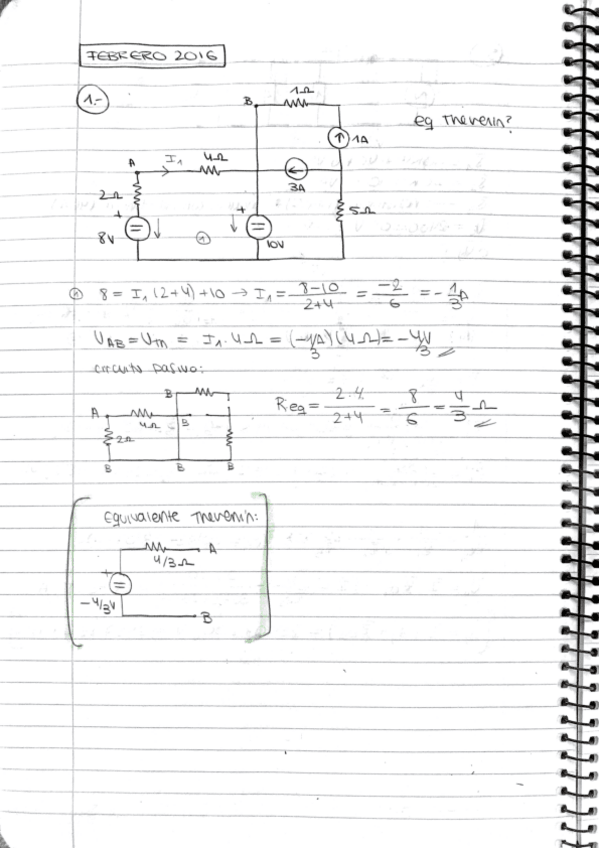 FEBRERO 2016
1.-
B 1Ω
eq Thevenin?
1A
A I₁ 4Ω
3A
2Ω
+ + 5Ω
8V 1 10V
① 8 = I₁ (2+4) + 10 → I₁ = 8-10/2+4 = -2/6 = -1/3 A
U_AB = U_TH = I₁ · 4Ω = (-1/3 A)(4Ω) = -4/3 V
circuito pasivo:
B
A 4Ω B
2Ω
B B B
Req = 2·4/2+4 = 8/6 = 4/3 Ω
Equivalente Thevenin:
A
4/3 Ω
+
-4/3 V
B